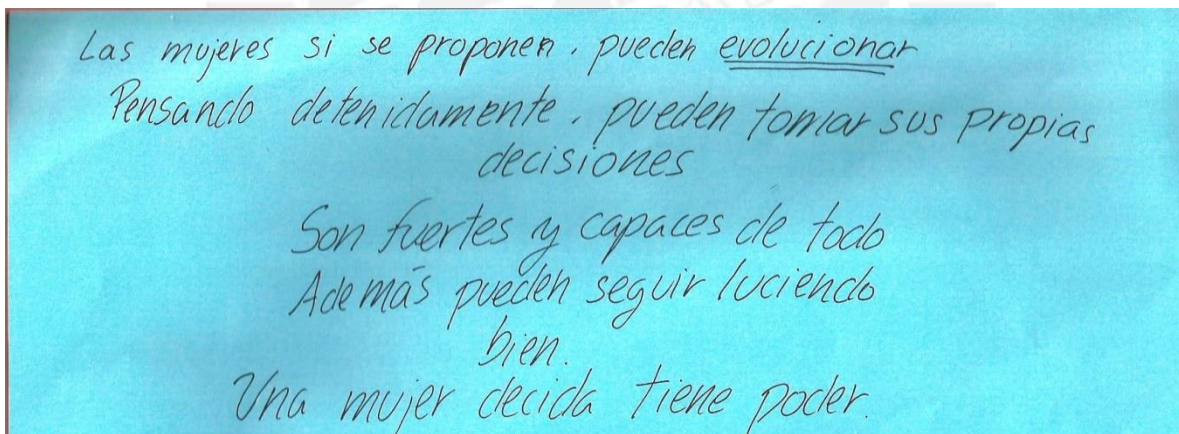 Las mujeres si se proponen, pueden evolucionar
Pensando detenidamente, pueden tomar sus propias
decisiones
Son fuertes y capaces de todo
Además pueden seguir luciendo
bien.
Una mujer decida tiene poder.